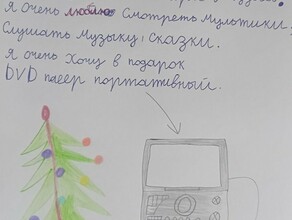 Я очень люблю смотреть мультики,
Слушать музыку, сказки.
Я очень хочу в подарок
DVD плеер портативный.